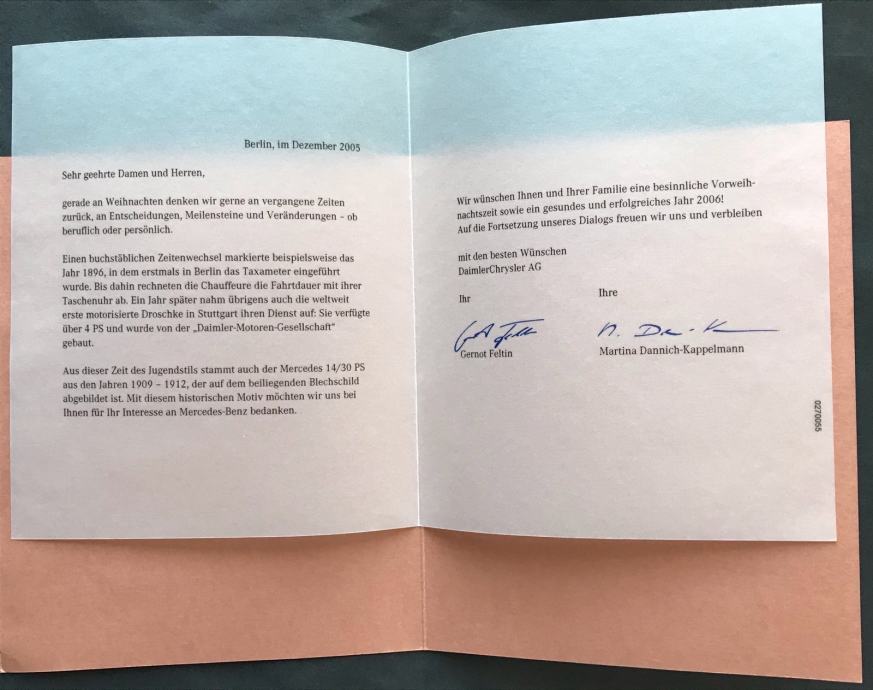 Berlin, im Dezember 2005
Sehr geehrte Damen und Herren,
gerade an Weihnachten denken wir gerne an vergangene Zeiten
zurück, an Entscheidungen, Meilensteine und Veränderungen – ob
beruflich oder persönlich.
Einen buchstäblichen Zeitenwechsel markierte beispielsweise das
Jahr 1896, in dem erstmals in Berlin das Taxameter eingeführt
wurde. Bis dahin rechneten die Chauffeure die Fahrtdauer mit ihrer
Taschenuhr ab. Ein Jahr später nahm übrigens auch die weltweit
erste motorisierte Droschke in Stuttgart ihren Dienst auf: Sie verfügte
über 4 PS und wurde von der „Daimler-Motoren-Gesellschaft“
gebaut.
Aus dieser Zeit des Jugendstils stammt auch der Mercedes 14/30 PS
aus den Jahren 1909 – 1912, der auf dem beiliegenden Blechschild
abgebildet ist. Mit diesem historischen Motiv möchten wir uns bei
Ihnen für Ihr Interesse an Mercedes-Benz bedanken.
Wir wünschen Ihnen und Ihrer Familie eine besinnliche Vorweih-
nachtszeit sowie ein gesundes und erfolgreiches Jahr 2006!
Auf die Fortsetzung unseres Dialogs freuen wir uns und verbleiben
mit den besten Wünschen
DaimlerChrysler AG
Ihr
Ihre
Gernot Feltin
Martina Dannich-Kappelmann
0270055